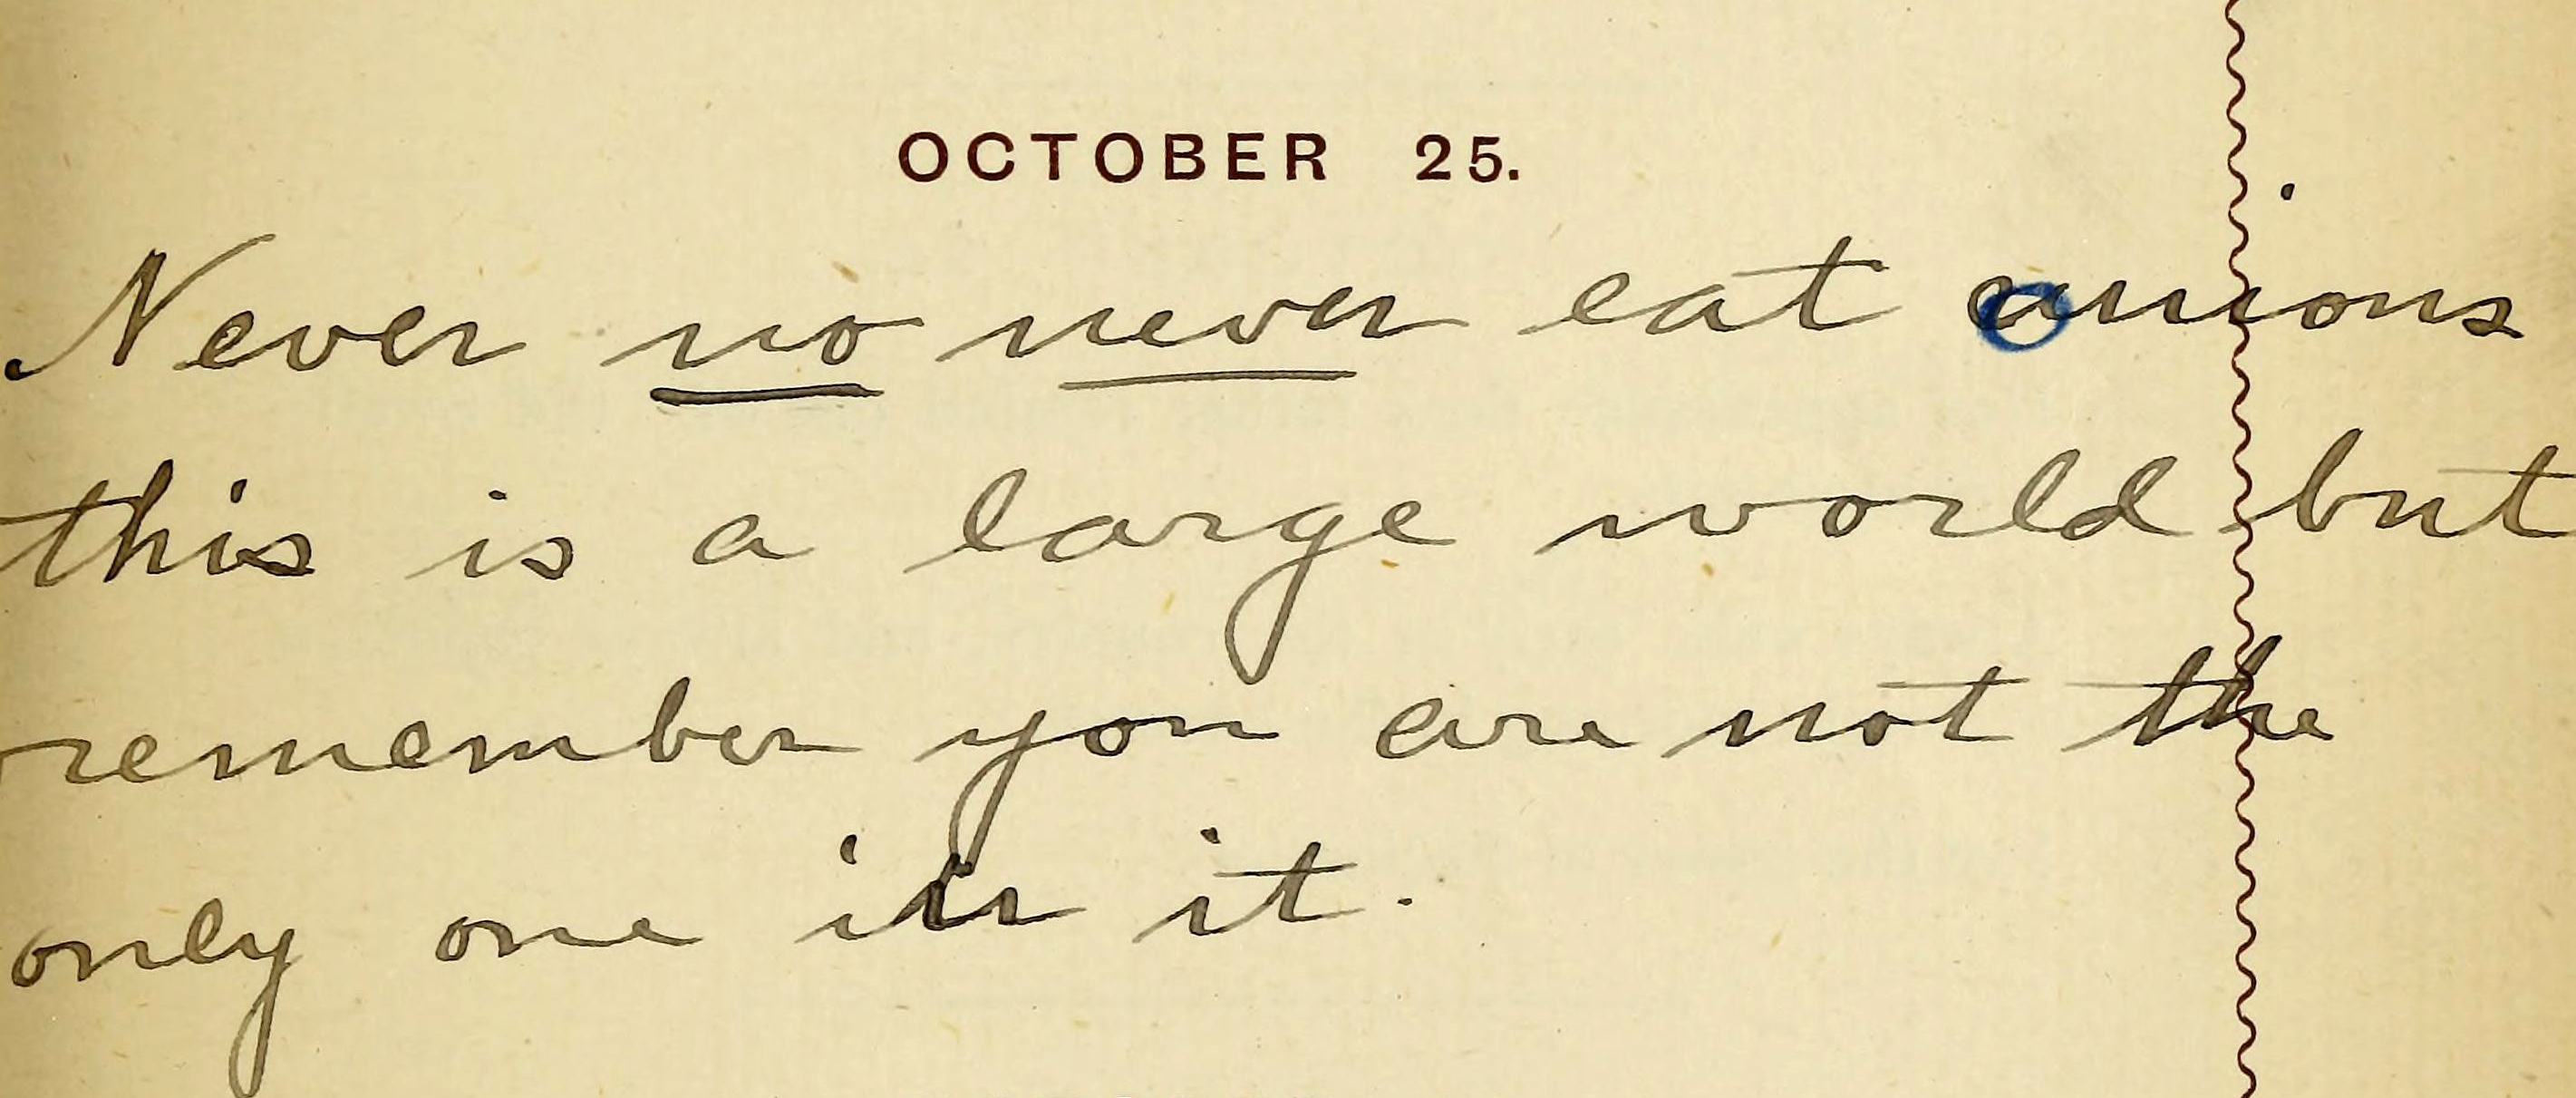 OCTOBER 25.
Never no never eat onions
this is a large world but
remember you are not the
only one in it.